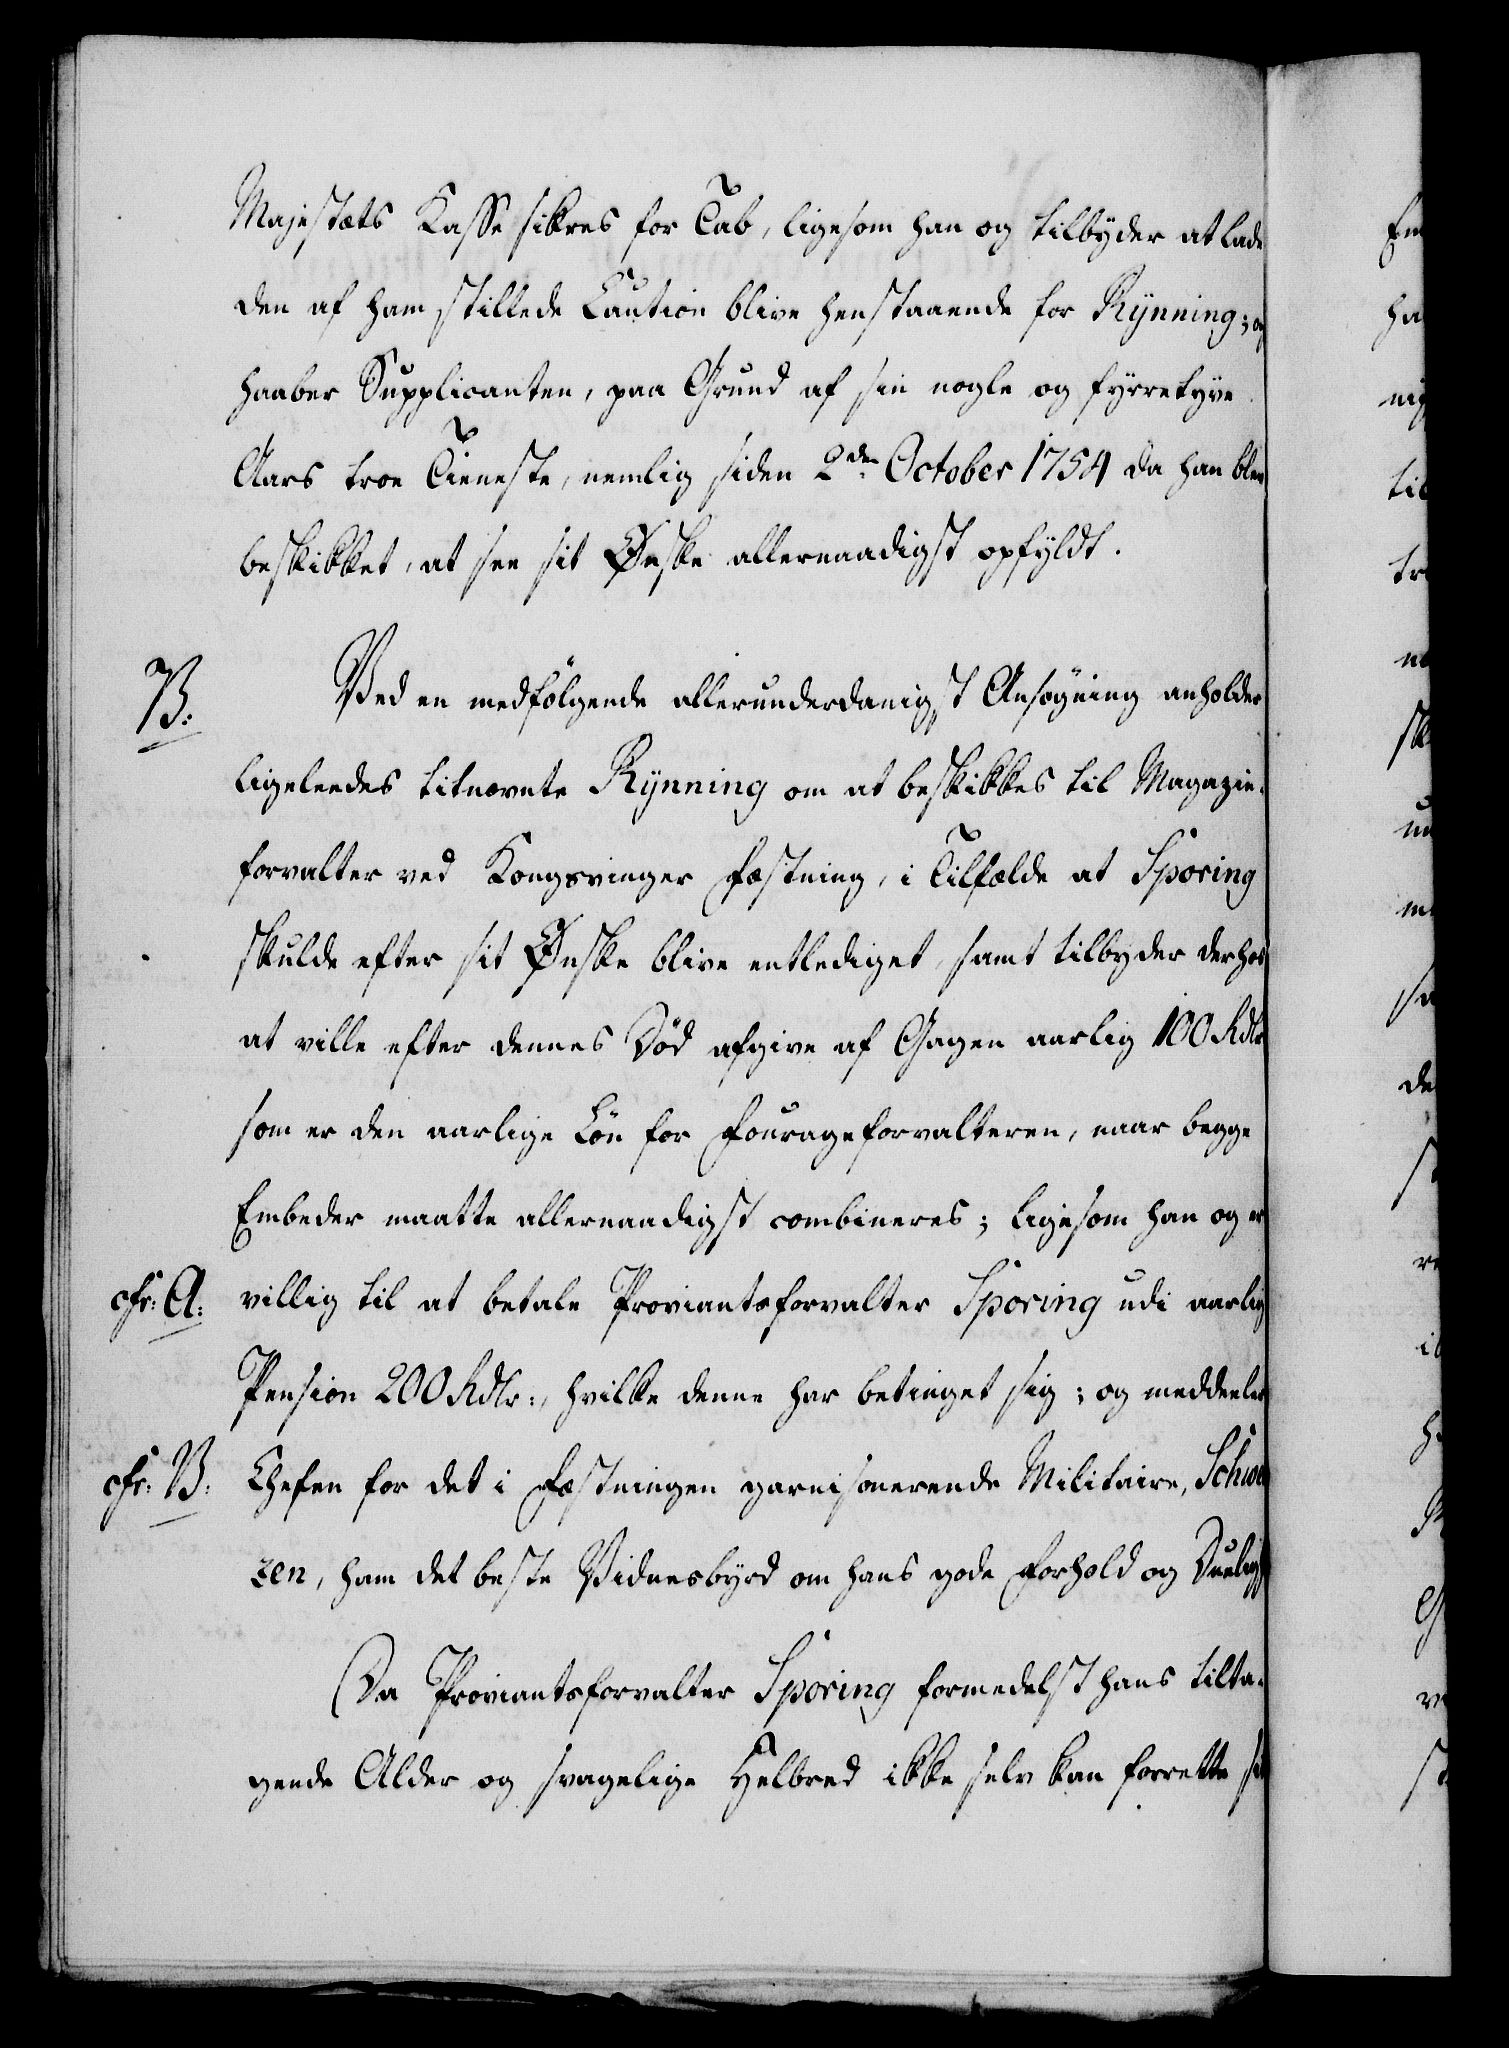 Majestæts Kasse sikres for Tab, ligesom han og tilbyder at lade
den af ham stillede Caution blive henstaaende for Rynning; og
haaber Supplicanten, paa Grund af sin nogle og fyrretyve
Aars troe Tieneste, nemlig siden 2den October 1754 da han blev
beskikket, at see sit Ønske allernaadigst opfyldt.
B:
Ved en medfølgende allerunderdanigst Ansøgning anholder
ligeledes titnævnte Rynning om at beskikkes til Magazin-
forvalter ved Kongsvinger Fæstning, i Tilfælde at Sporing
skulde efter sit Ønske blive entlediget, samt tilbyder derhos
at ville efter dennes Død afgive af Gagen aarlig 100 Rdlr
som er den aarlige Løn for Fourageforvalteren, naar begge
Embeder maatte allernaadigst combineres; ligesom han og er
cfr: A:
villig til at betale Proviantsforvalter Sporing udi aarlig
Pension 200 Rdlr:, hvilke denne har betinget sig; og meddeeler
cfr: B:
Chefen for det i Fæstningen garnisonerende Militaire, Schwe
zen, ham det beste Vidnesbyrd om hans gode Forhold og
Da Proviantsforvalter Sporing formedelst hans tilta-
gende Alder og svagelige Helbred ikke selv kan forrette